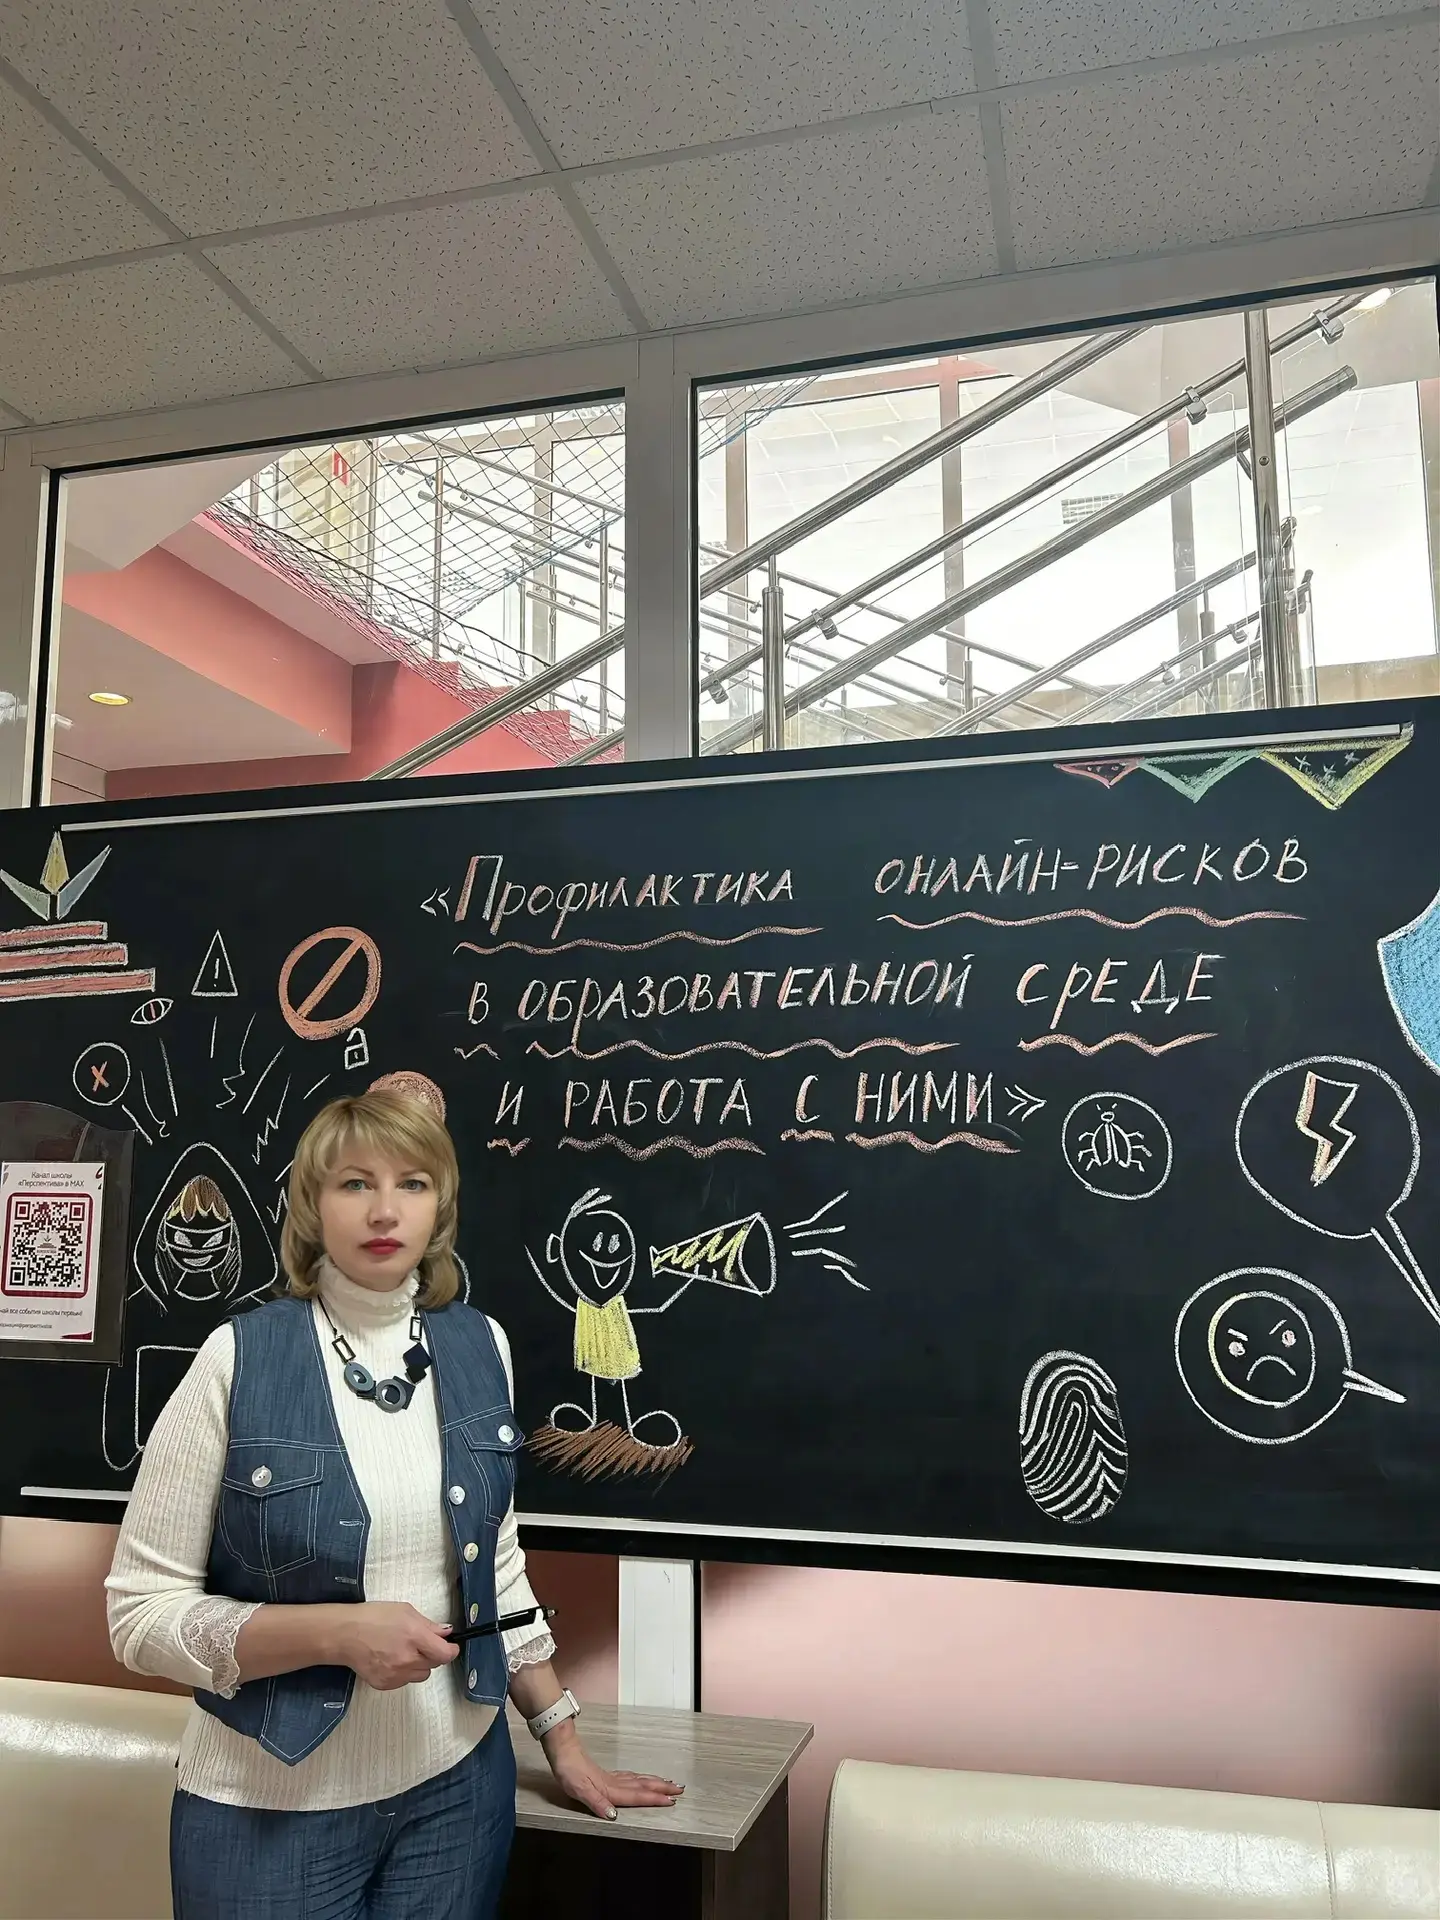 «Профилактика онлайн-рисков
в образовательной среде
и работа с ними»
Канал школы
«Перспектива» в MAX
все события школы первым!